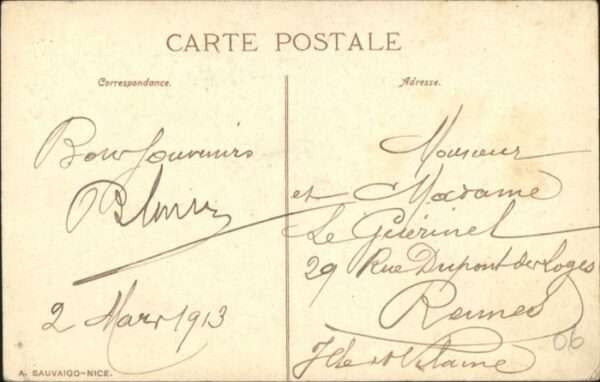 CARTE POSTALE
Correspondance.
Bons Souvenirs
2 Mars 1913
A. SAUVAIGO-NICE.
Adresse.
Monsieur
et Madame
Le Guérinel
29 Rue Dupont des Loges
Rennes
Ille et Vilaine
06